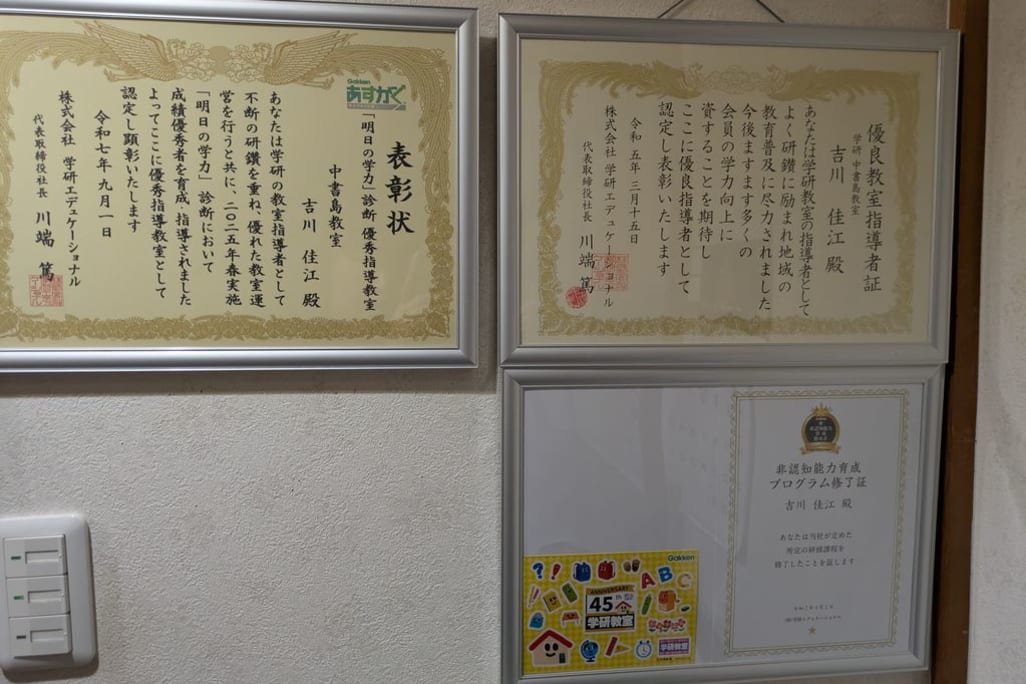 Gakken
あすがく
表彰状
「明日の学力」診断 優秀指導教室
中書島教室
吉川 佳江 殿
あなたは学研の教室指導者として
不断の研鑽を重ね、優れた教室運
営を行うと共に、二〇二五年春実施
「明日の学力」診断において
成績優秀者を育成、指導されました
よってここに優秀指導教室として
認定し顕彰いたします
令和七年九月一日
株式会社 学研エデュケーショナル
代表取締役社長 川端 篤
優良教室指導者証
学研 中書島教室
吉川 佳江 殿
あなたは学研教室の指導者として
よく研鑽に励まれ地域の
教育普及に尽力されました
今後ますます多くの
会員の学力向上に
資することを期待し
ここに優良指導者として
認定し表彰いたします
令和 五年 三月十五日
株式会社 学研エデュケーショナル
代表取締役社長 川端 篤
非認知能力育成
プログラム修了証
吉川 佳江 殿
あなたは当社が定めた
所定の研修課程を
修了したことを証します
Gakken
?!
ABC
ANNIVERSARY
45th
学研教室
学研教室